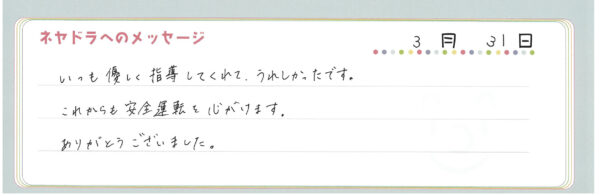 ネヤドラへのメッセージ
3月 31日
いつも優しく指導してくれて、うれしかったです。
これからも安全運転を心がけます。
ありがとうございました。